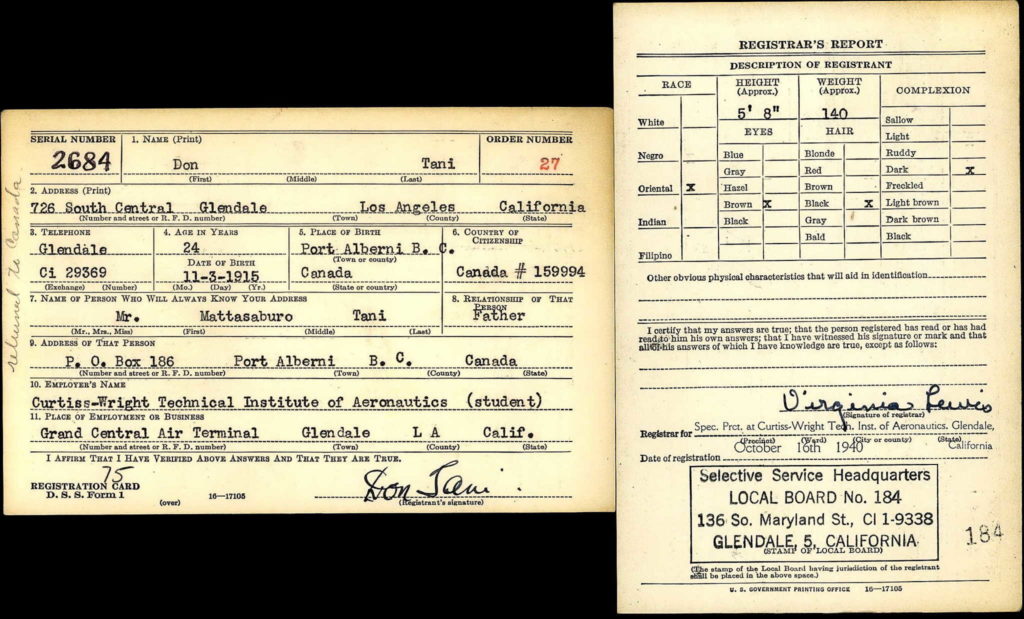 SERIAL NUMBER 1. NAME (Print) ORDER NUMBER
2684 Don Tani 27
(First) (Middle) (Last)
2. ADDRESS (Print)
726 South Central Glendale Los Angeles California
(Number and street or R. F. D. number) (Town) (County) (State)
3. TELEPHONE 4. AGE IN YEARS 5. PLACE OF BIRTH 6. COUNTRY OF CITIZENSHIP
Glendale 24 Port Alberni B. C.
DATE OF BIRTH (Town or county)
Ci 29369 11-3-1915 Canada Canada # 159994
(Exchange) (Number) (Mo.) (Day) (Yr.) (State or country)
7. NAME OF PERSON WHO WILL ALWAYS KNOW YOUR ADDRESS 8. RELATIONSHIP OF THAT PERSON
Mr. Mattasaburo Tani Father
(Mr., Mrs., Miss) (First) (Middle) (Last)
9. ADDRESS OF THAT PERSON
P. O. Box 186 Port Alberni B. C. Canada
(Number and street or R. F. D. number) (Town) (County) (State)
10. EMPLOYER'S NAME
Curtiss-Wright Technical Institute of Aeronautics (student)
11. PLACE OF EMPLOYMENT OR BUSINESS
Grand Central Air Terminal Glendale L A Calif.
(Number and street or R. F. D. number) (Town) (County) (State)
I AFFIRM THAT I HAVE VERIFIED ABOVE ANSWERS AND THAT THEY ARE TRUE.
75
REGISTRATION CARD
D. S. S. Form 1 16—17105 Don Tani
(over) (Registrant's signature)
returned to Canada
REGISTRAR'S REPORT
DESCRIPTION OF REGISTRANT
RACE HEIGHT (Approx.) WEIGHT (Approx.) COMPLEXION
5' 8" 140
White Sallow
EYES HAIR Light
Negro Blue Blonde Ruddy
Gray Red Dark X
Oriental X Hazel Brown Freckled
Brown X Black X Light brown
Indian Black Gray Dark brown
Bald Black
Filipino
Other obvious physical characteristics that will aid in identification
I certify that my answers are true; that the person registered has read or has had
read to him his own answers; that I have witnessed his signature or mark and that
all of his answers of which I have knowledge are true, except as follows:
Virginia Lewis
(Signature of registrar)
Registrar for Spec. Prct. at Curtiss-Wright Tech. Inst. of Aeronautics. Glendale,
(Precinct) (Ward) (City or county) (State)
Date of registration October 16th 1940 California
Selective Service Headquarters
LOCAL BOARD No. 184
136 So. Maryland St., CI 1-9338
GLENDALE, 5, CALIFORNIA
(STAMP OF LOCAL BOARD)
184
(The stamp of the Local Board having jurisdiction of the registrant
shall be placed in the above space.)
U. S. GOVERNMENT PRINTING OFFICE 16—17105